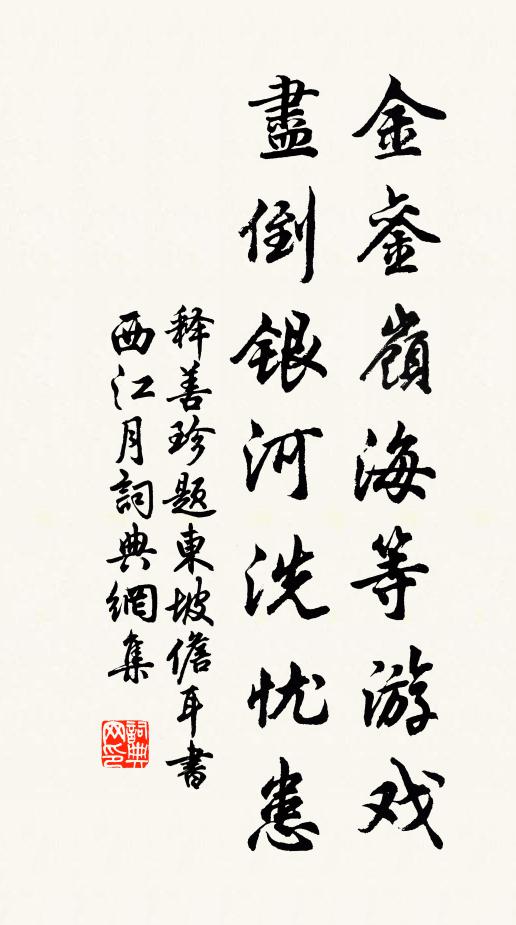 金銮嶺海等游戏
盡倒銀河洗忧患
释善珍题東坡儋耳書
西江月詞典網集
詞典网印